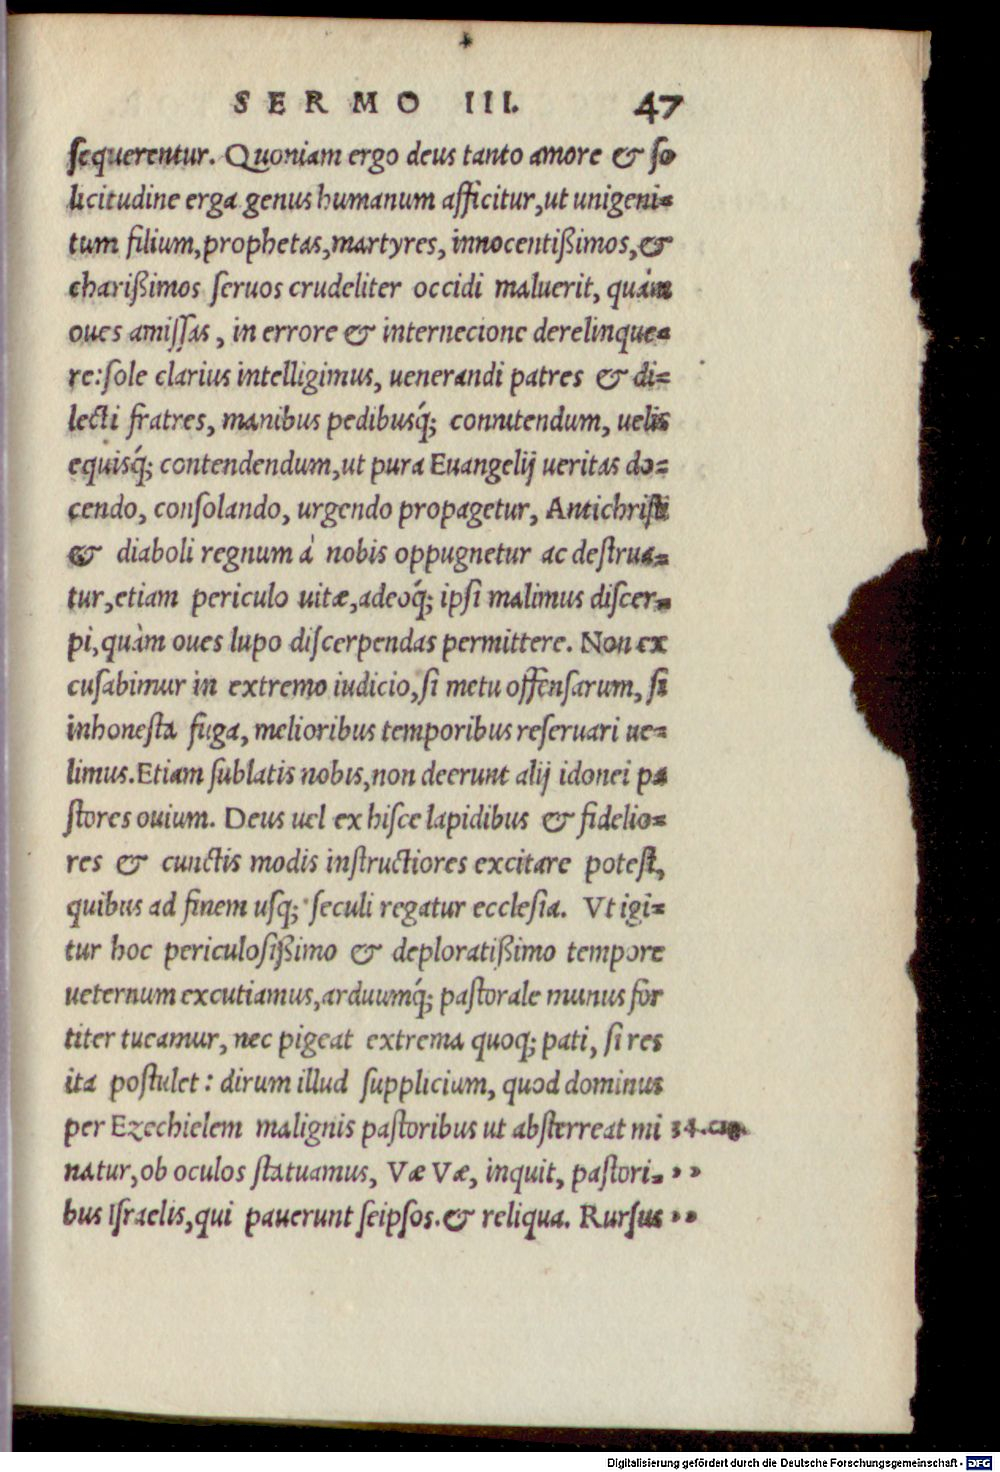 SERMO III. 47
sequerentur. Quoniam ergo deus tanto amore & so
licitudine erga genus humanum afficitur, ut unigeni=
tum filium, prophetas, martyres, innocentißimos, &
charißimos seruos crudeliter occidi maluerit, quàm
oues amissas, in errore & internecione derelinque=
re: sole clarius intelligimus, uenerandi patres & di=
lecti fratres, manibus pedibusq́; connitendum, uelis
equisq́; contendendum, ut pura Euangelij ueritas do=
cendo, consolando, urgendo propagetur, Antichristi
& diaboli regnum à nobis oppugnetur ac destrua=
tur, etiam periculo uitæ, adeoq́; ipsi malimus discer=
pi, quàm oues lupo discerpendas permittere. Non ex
cusabimur in extremo iudicio, si metu offensarum, si
inhonesta fuga, melioribus temporibus reseruari ue=
limus. Etiam sublatis nobis, non deerunt alij idonei pa
stores ouium. Deus uel ex hisce lapidibus & fidelio=
res & cunctis modis instructiores excitare potest,
quibus ad finem usq; seculi regatur ecclesia. Vt igi=
tur hoc periculosißimo & deploratißimo tempore
ueternum excutiamus, arduumq́; pastorale munus for
titer tueamur, nec pigeat extrema quoq; pati, si res
ita postulet: dirum illud supplicium, quod dominus
per Ezechielem malignis pastoribus ut absterreat mi 34.
natur, ob oculos statuamus, Væ Væ, inquit, pastori= ››
bus Israelis, qui pauerunt seipsos. & reliqua. Rursus ››
Digitalisierung gefördert durch die Deutsche Forschungsgemeinschaft - DFG